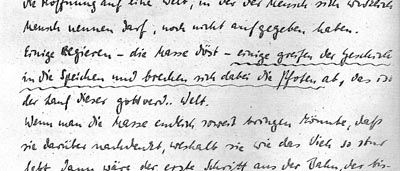 die Hoffnung auf eine Welt, in der der Mensch sich wirklich
Mensch nennen darf, noch nicht aufgegeben haben.
Einige Regieren – die Masse döst – einige greifen der Geschichte
in die Speichen und brechen sich dabei die Pfoten ab, das ist
der Lauf dieser gottverd.. Welt.
Wenn man die Masse endlich soweit bringen könnte, daß
sie darüber nachdenkt, weshalb sie wie das Vieh so stur
lebt. Dann wäre der erste Schritt aus der Bahn, der bis-